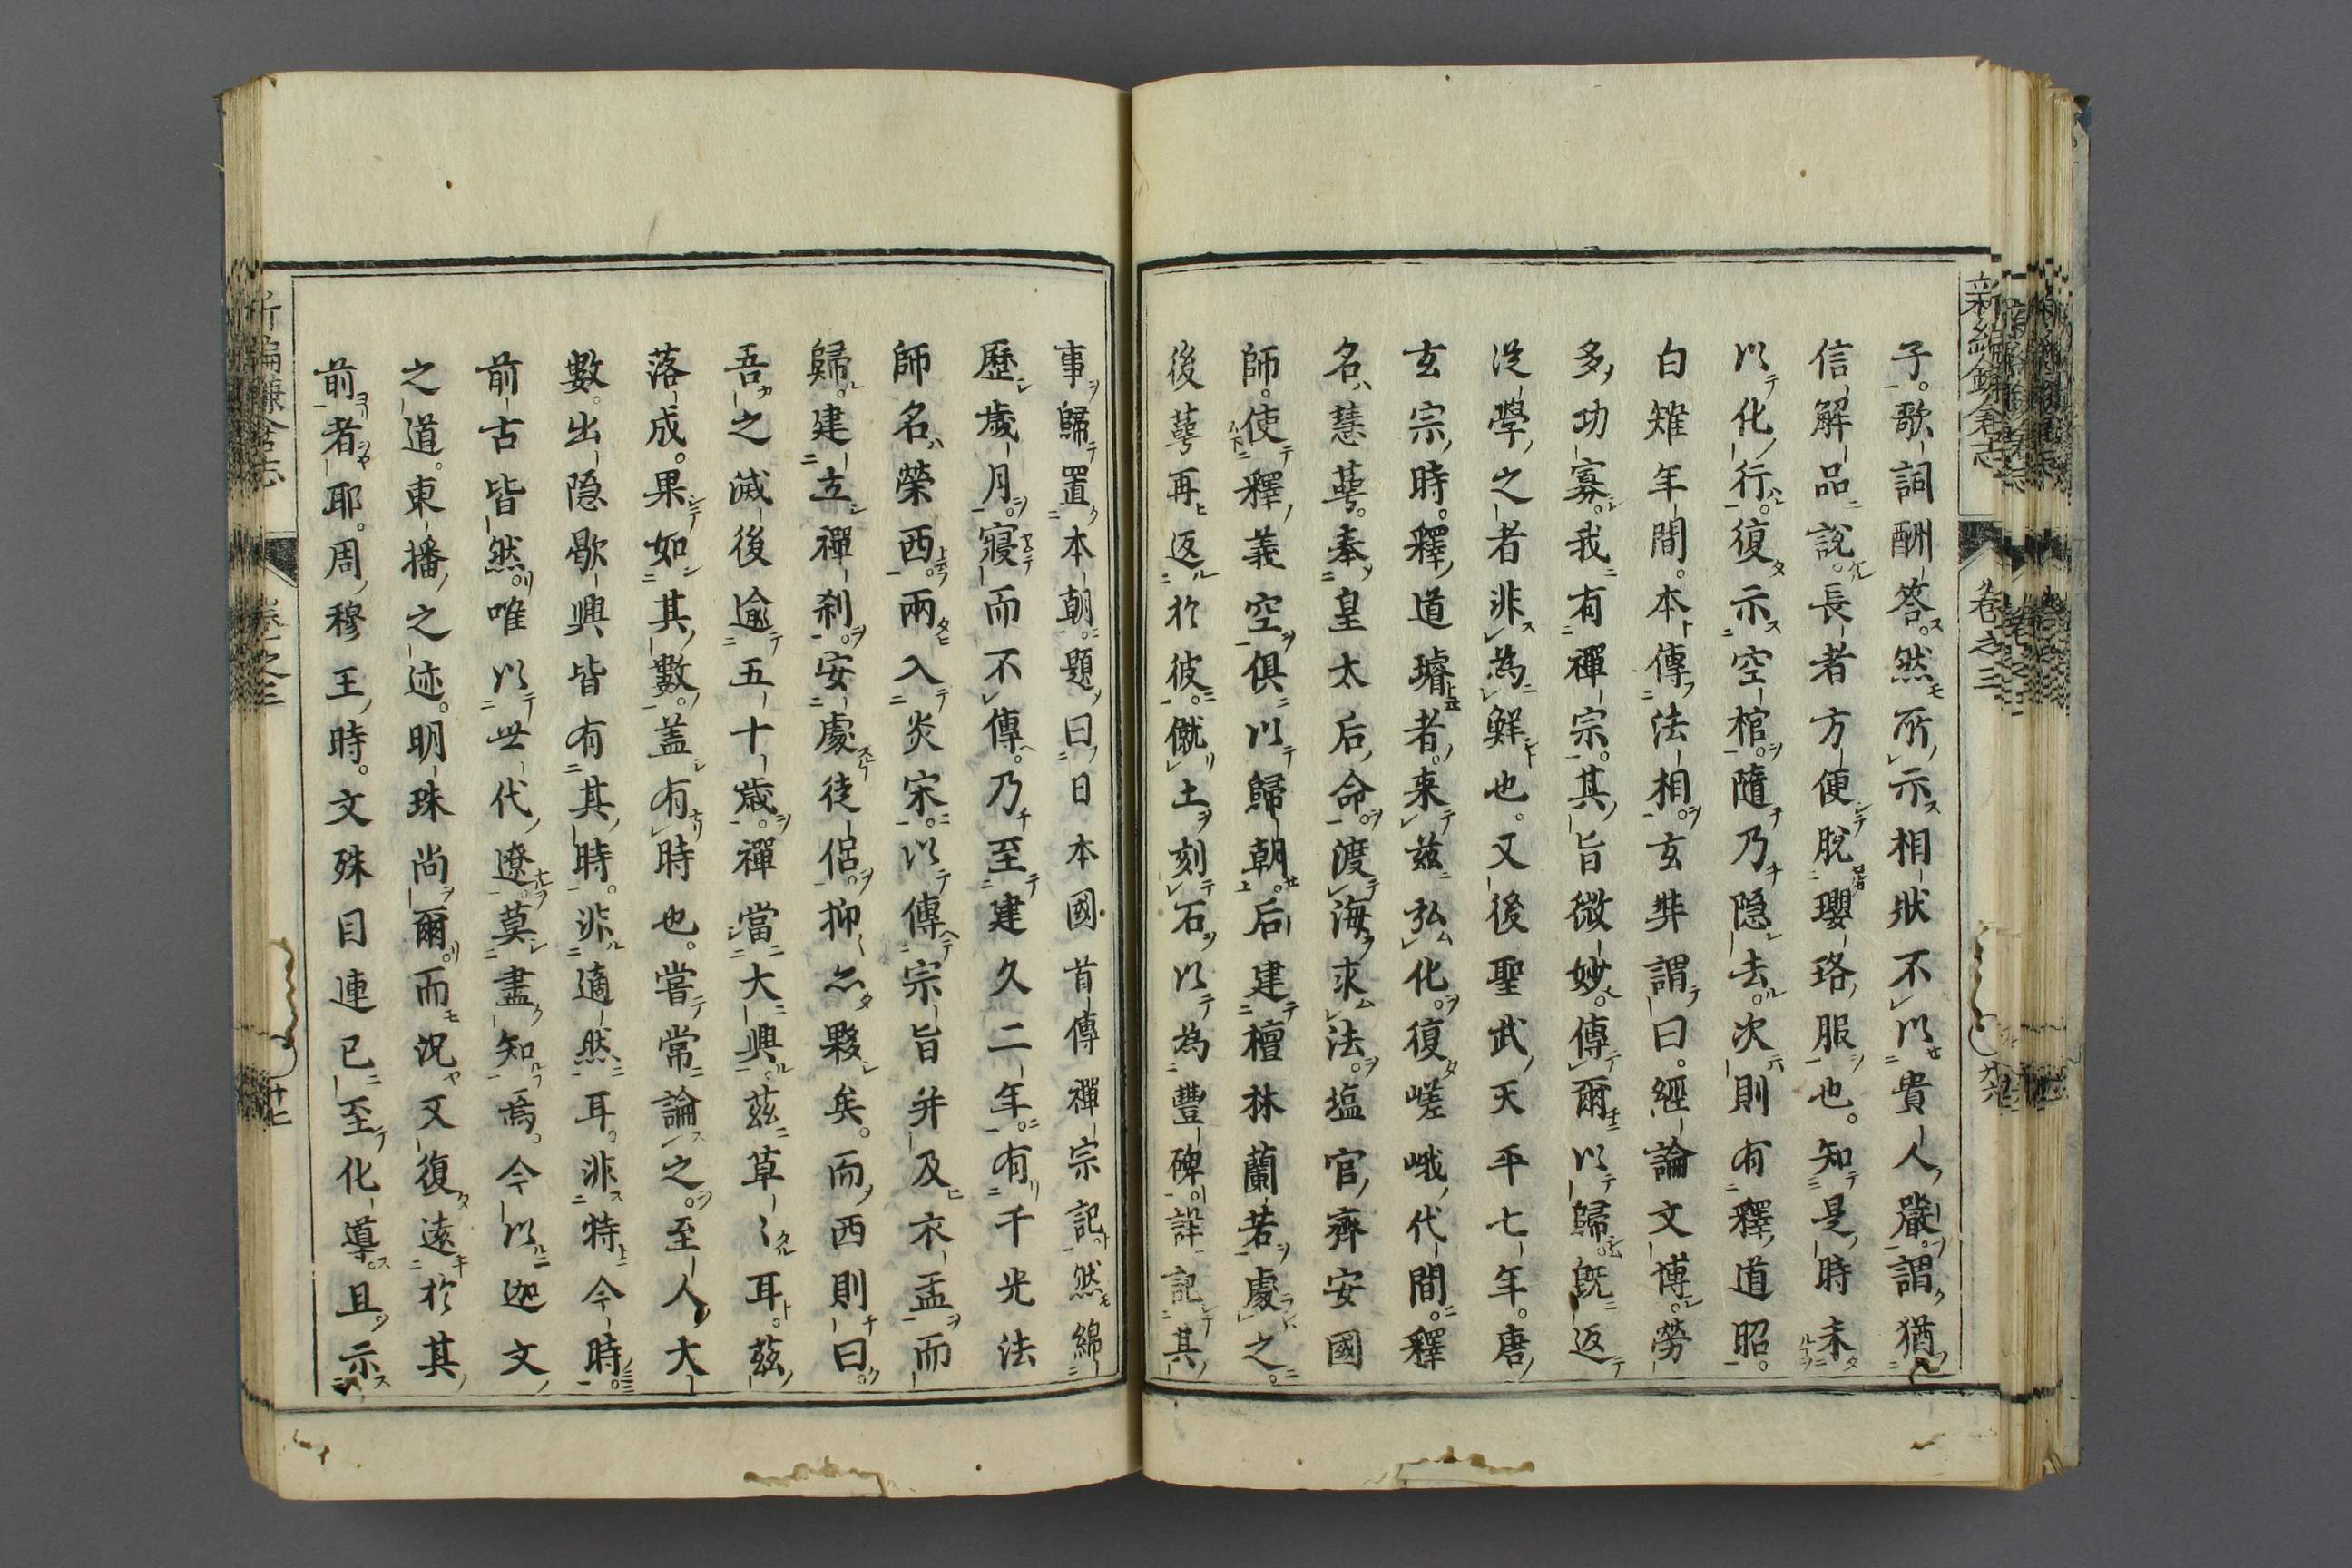 子。歌詞酬答。然所示相狀不以貴人嚴。謂猶
信解品說。長者方便脫瓔珞服也。知是時未
以化行。復示空棺。隨乃隱去。次則有釋道昭。
白雉年間。本傳法相。玄弉謂曰。經論文博。勞
多功寡。我有禪宗。其旨微妙。傳爾以歸。既返
從學之者非為鮮也。又後聖武天平七年。唐
玄宗時。釋道璿者。来茲弘化。復嵯峨代間。釋
名慧萼。奉皇太后命。渡海求法。塩官齊安國
師。使釋義空俱以歸朝。后建檀林蘭若處之。
後萼再返於彼。僦土刻石以為豐碑詳記其
事歸置本朝。題曰日本國首傳禪宗記。然綿
歷歲月。寢而不傳。乃至建久二年。有千光法
師名榮西。兩入炎宋。以傳宗旨并及衣盂而
歸。建立禪刹。安處徒侶。抑亦夥矣。而西則曰。
吾之滅後逾五十歲。禪當大興。茲草〻耳。茲
落成。果如其數。盖有時也。嘗常論之。至人大
數。出隱歇興皆有其時。非適然耳。非特今時。
前古皆然。唯以世代遼。莫盡知焉。今以迦文
之道。東播之迹。明珠尚爾。而況又復遠於其
前者耶。周穆王時。文殊目連已至化導。且示
新編鎌倉志
卷之三
廿六
新編鎌倉志
卷之三
廿七